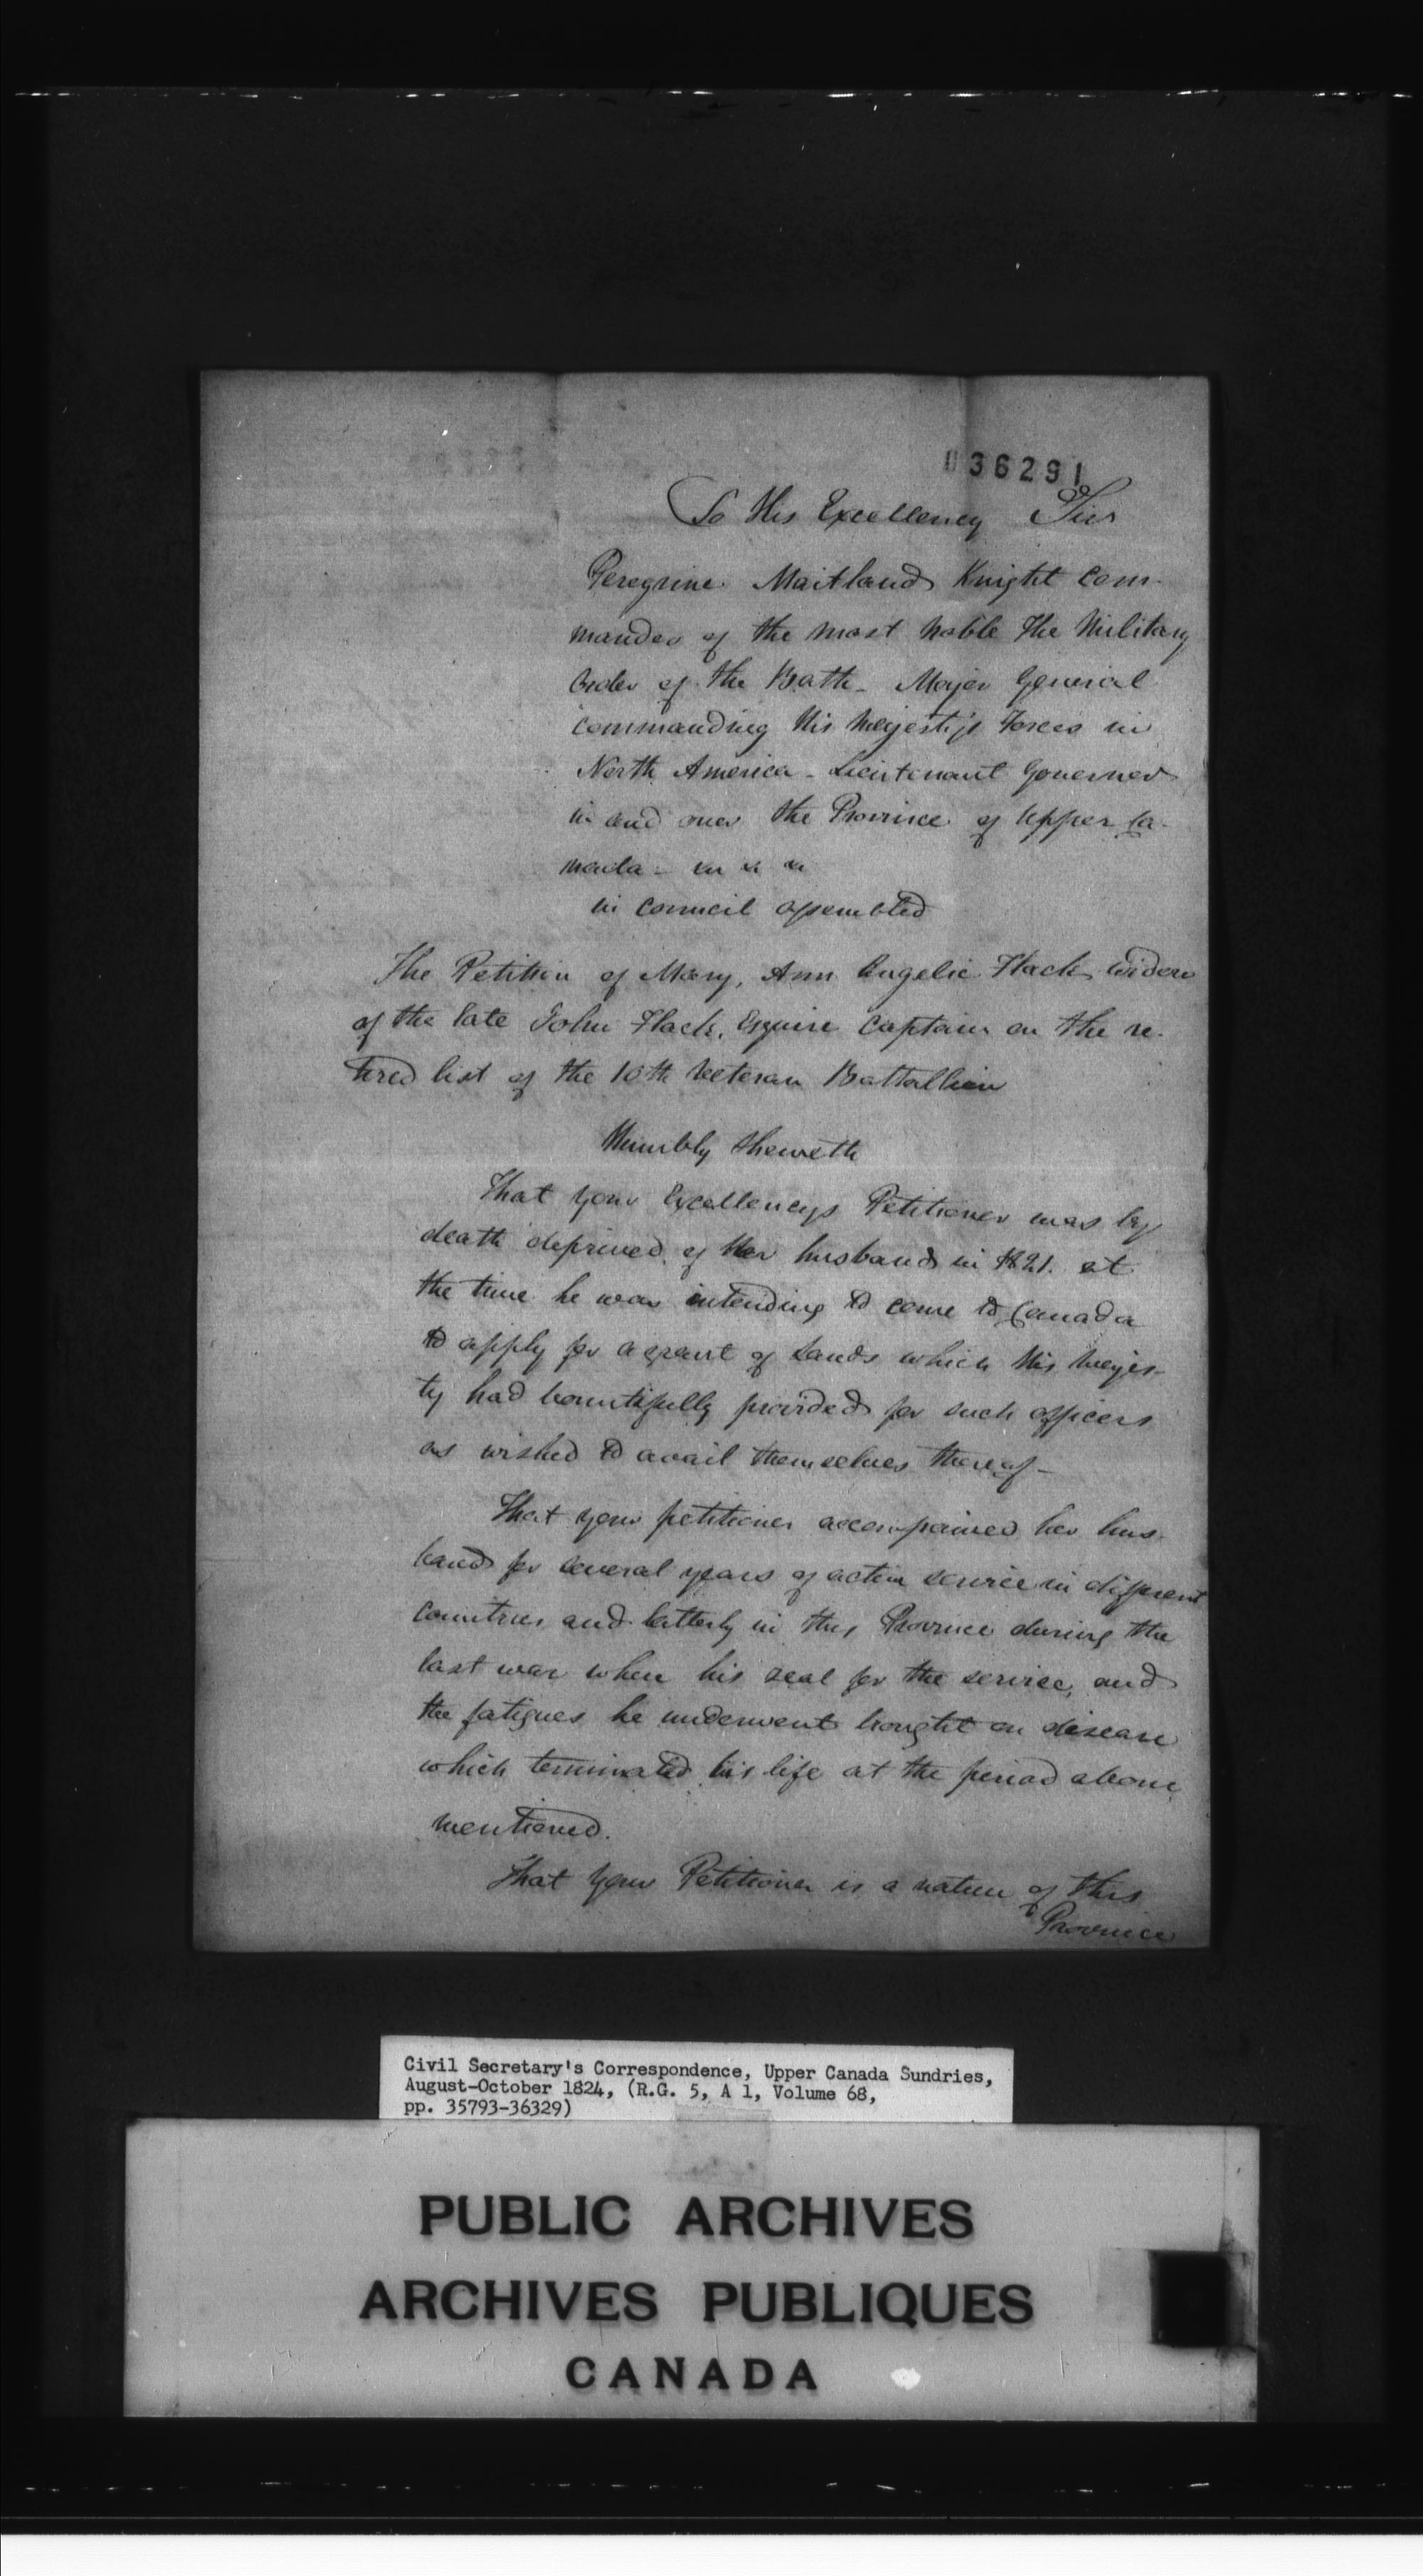 036291
To His Excellency Sir
Peregrine Maitland Knight Com-
mander of the most noble The Military
Order of the Bath - Major General
commanding His Majesty's Forces in
North America - Lieutenant Governor
in and over the Province of Upper Ca-
nada -
in council assembled
The Petition of Mary, Ann Angelic Flack Widow
of the late John Flack, Esquire Captain on the re-
tired list of the 10th Veteran Battallion
Humbly Sheweth
That your Excellencys Petitioner was by
death deprived of Her husband in 1821. at
the time he was intending to come to Canada
to apply for a grant of Lands which His Majes-
ty had bountifully provided for such officers
as wished to avail themselves thereof -
That your petitioner accompanied her hus-
band for several years of active service in different
countries and latterly in this Province during the
last war when his zeal for the service, and
the fatigues he underwent brought on disease
which terminated his life at the period above
mentioned.
That your Petitioner is a native of this
Province
Civil Secretary's Correspondence, Upper Canada Sundries,
August-October 1824, (R.G. 5, A 1, Volume 68,
pp. 35793-36329)
PUBLIC ARCHIVES
ARCHIVES PUBLIQUES
CANADA